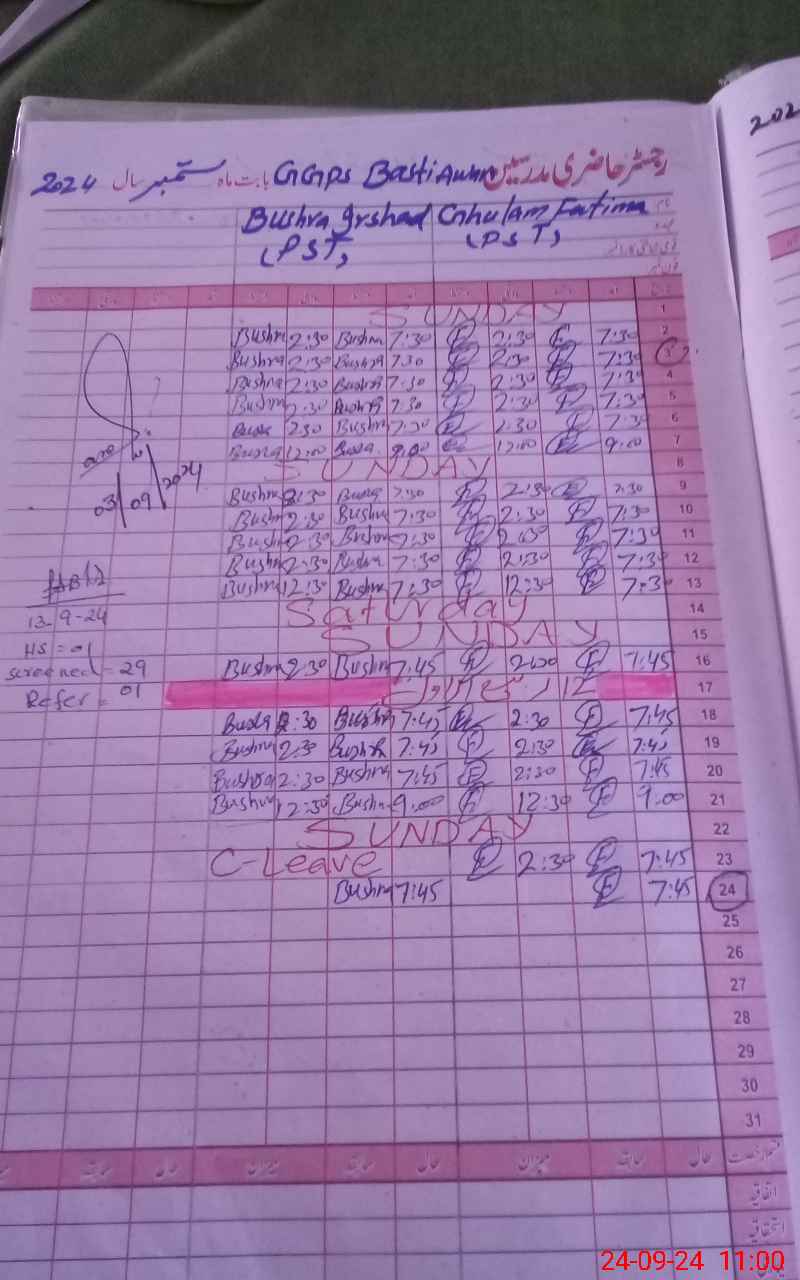 رجسٹر حاضری مدرسین GGPS Basti Awan بابت ماہ ستمبر سال 2024
Bushra Irshad Ghulam Fatima
(PST) (PST)
SUNDAY 1
Bushra 2:30 Bushra 7:30 2:30 7:30 2
Bushra 2:30 Bushra 7:30 2:30 7:30 3
Bushra 2:30 Bushra 7:30 2:30 7:30 4
Bushra 2:30 Bushra 7:30 2:30 7:30 5
Bushra 2:30 Bushra 7:30 2:30 7:30 6
Bushra 12:00 Bushra 9:00 12:00 9:00 7
SUNDAY 8
03/09/2024
Bushra 2:30 Bushra 7:30 2:30 7:30 9
Bushra 2:30 Bushra 7:30 2:30 7:30 10
Bushra 2:30 Bushra 7:30 2:30 7:30 11
Bushra 2:30 Bushra 7:30 2:30 7:30 12
Bushra 12:30 Bushra 7:30 12:30 7:30 13
Saturday 14
13-9-24
SUNDAY 15
HS = 01
Screened = 29 Bushra 2:30 Bushra 7:45 2:30 7:45 16
Refer = 01
12 ربیع الاول 17
Bushra 2:30 Bushra 7:45 2:30 7:45 18
Bushra 2:30 Bushra 7:45 2:30 7:45 19
Bushra 2:30 Bushra 7:45 2:30 7:45 20
Bushra 12:30 Bushra 9:00 12:30 9:00 21
SUNDAY 22
C-Leave 2:30 7:45 23
Bushra 7:45 7:45 24
25
26
27
28
29
30
31
حال سابقہ میزان حال سابقہ میزان حال سابقہ
اتفاقیہ
استحقاقیہ
202
24-09-24 11:00